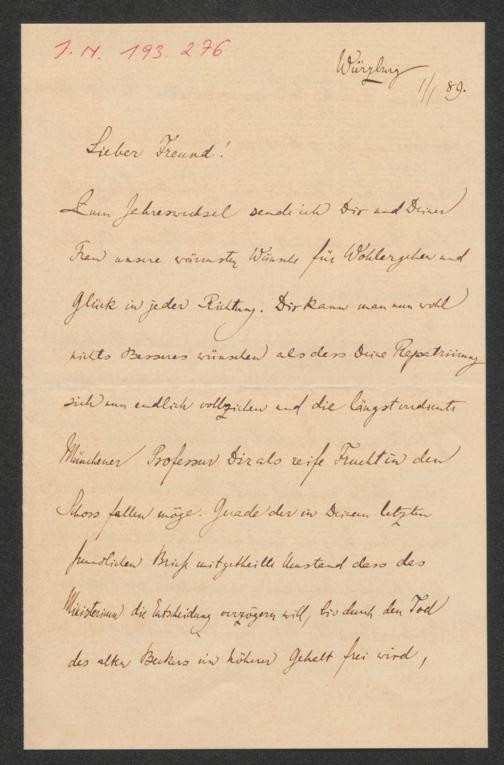 J. N. 193.276
Würzburg
1/1 89.
Lieber Freund!
Zum Jahreswechsel sende ich Dir und Deiner
Frau unsere wärmsten Wünsche für Wohlergehen und
Glück in jeder Richtung. Dir kann man nun wohl
nichts Besseres wünschen als dass Deine Repatriirung
sich nun endlich vollziehen und die längst verdiente
Münchener Professur Dir als reife Frucht in den
Schoss fallen möge. Gerade der in Deinem letzten
freundlichen Brief mitgetheilte Umstand dass das
Ministerium die Entscheidung verzögern will, bis durch den Tod
des alten Beckers ein höherer Gehalt frei wird,